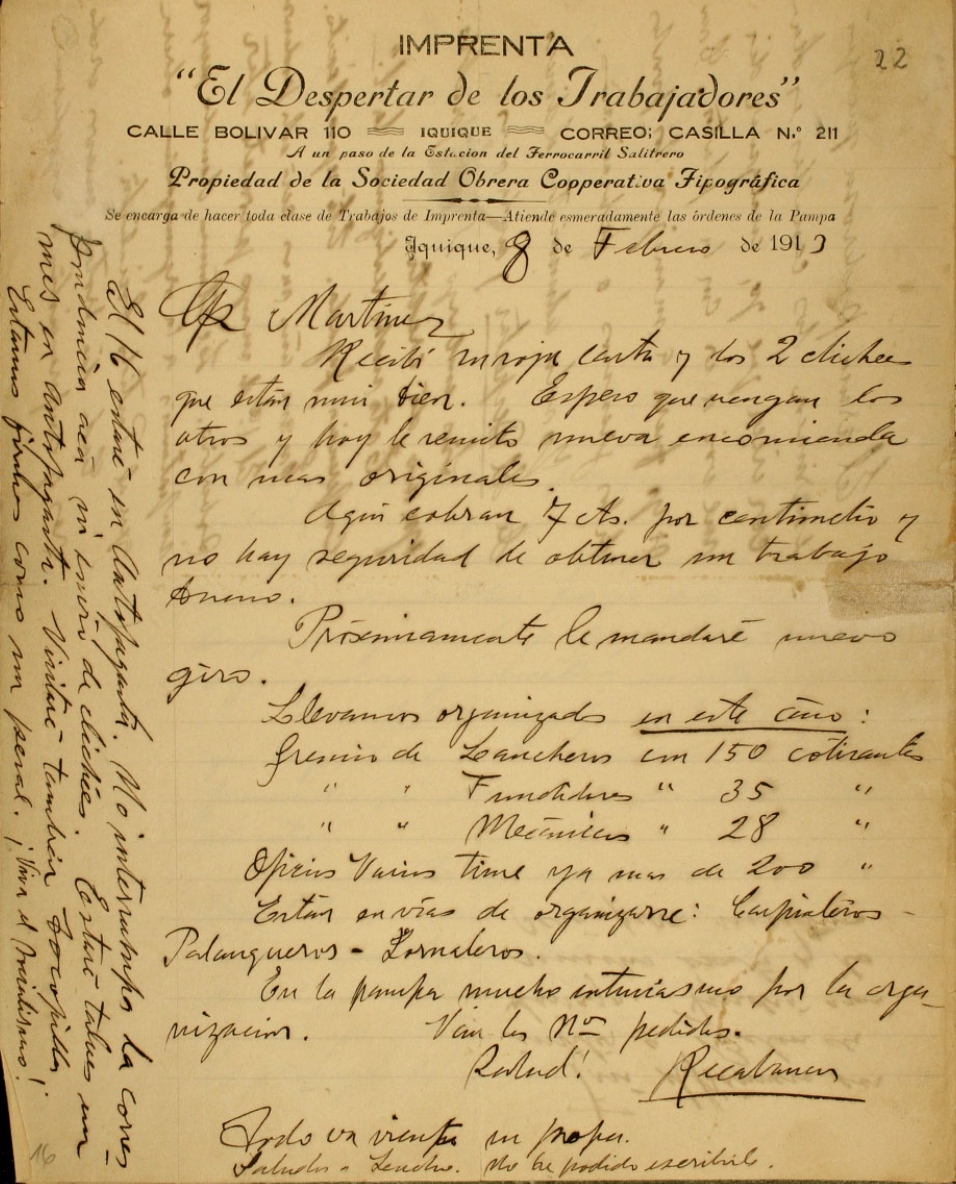 22
IMPRENTA
"El Despertar de los Trabajadores"
CALLE BOLIVAR 110 IQUIQUE CORREO; CASILLA N.º 211
A un paso de la Estacion del Ferrocarril Salitrero
Propiedad de la Sociedad Obrera Copperativa Tipográfica
Se encarga de hacer toda clase de Trabajos de Imprenta—Atiende esmeradamente las órdenes de la Pampa
Iquique, 8 de Febrero de 1913
Martinez
Recibí carta y los 2 clichés
que están mui bien. Espero que vengan los
otros y hoy le remito nueva encomienda
con mas originales.
Aquí cobran 7 cts. por centímetro y
no hay seguridad de obtener un trabajo
bueno.
Próximamente le mandaré nuevo
giro.
Llevamos organizados en este año:
gremio de Lancheros con 150 cotizantes
" " Fundidores " 35 "
" " Mecánicos " 28 "
Oficios Varios tiene ya mas de 200 "
Están en vías de organizarse: Carpinteros -
Palanqueros - Jornaleros.
En la pampa mucho entusiasmo por la orga-
nización. Van los Nos pedidos.
Salud! Recabarren
Todo va viento en popa.
Saludos a . No he podido escribirle.
El 16 estaré en Antofagasta. No interrumpa la corres-
pondencia acá ni envío de clichées. Estaré talvez un
mes en Antofagasta. Visitaré tambien Tocopilla.
Estamos firmes como un peral. ¡Viva el Socialismo!
16